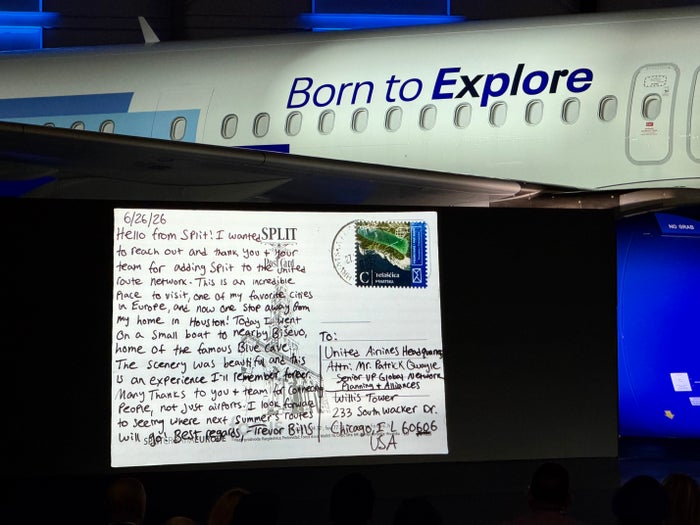 Born to Explore
NO GRAB
6/26/26
Hello from Split! I wanted
to reach out and thank you + your
team for adding Split to the United
route network. This is an incredible
place to visit, one of my favorite cities
in Europe, and now one stop away from
my home in Houston! Today I went
on a small boat to nearby Biševo,
home of the famous Blue Cave.
The scenery was beautiful and this
is an experience I'll remember forever.
Many Thanks to you + team for connecting
people, not just airports. I look forward
to seeing where next summer's routes
will go! Best regards, Trevor Bills
SPLIT
Post Card
C
Telašćica
HRVATSKA
To:
United Airlines Headquarters
Attn: Mr. Patrick Quayle
Senior VP Global Network
Planning + Alliances
Willis Tower
233 South Wacker Dr.
Chicago, IL 60606
USA
EUROPE